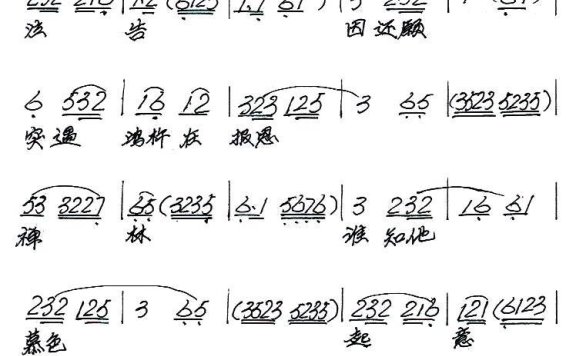 232 216 | 12 (6123 | 1·1 61) | 3 232 | 1 (61) |
法 告 因还愿
6 532 | 16 12 | 323 125 | 3 65 | (3523 5235) |
突遇 鸿 在 报恩
53 3227 | 65 (3235 | 6·1 5676) | 3 232 | 16 61 |
禅 林 谁 知他
232 125 | 3 65 | (3523 5235) | 232 216 | 121 (6123
慕色 起 意